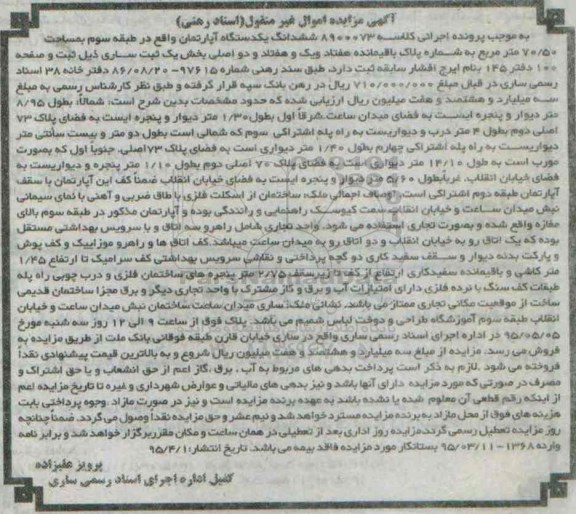 آگهی مزایده اموال غیر منقول(اسناد رهنی)
به موجب پرونده اجرائی کلاسه ۸۹۰۰۰۷۳ ششدانگ یکدستگاه آپارتمان واقع در طبقه سوم بمساحت
۷۰/۵۰ متر مربع به شماره پلاک باقیمانده هفتاد ویک و هفتاد و دو اصلی بخش یک ثبت ساری ذیل ثبت و صفحه
۱۰۰ دفتر ۱۴۵ بنام ایرج افشار سابقه ثبت دارد. طبق سند رهنی شماره ۹۷۶۱۵-۸۶/۰۸/۲۰ دفتر خانه ۳۸ اسناد
رسمی ساری در قبال مبلغ ۷۱۰/۰۰۰/۰۰۰ ریال در رهن بانک سپه قرار گرفته و طبق نظر کارشناس رسمی به مبلغ
سه میلیارد و هشتصد و هفت میلیون ریال ارزیابی شده که حدود مشخصات بدین شرح است: شمالاً، بطول ۸/۹۵
متر دیوار و پنجره ایست به فضای میدان ساعت.شرقاً اول بطول ۱/۳۰ متر دیوار و پنجره ایست به فضای پلاک ۷۳
اصلی دوم بطول ۴ متر درب و دیواریست به راه پله اشتراکی سوم که شمالی است بطول دو متر و بیست سانتی متر
دیواریست به راه پله اشتراکی چهارم بطول ۱/۴۰ متر دیواری است به فضای پلاک ۷۳اصلی. جنوباً اول که بصورت
مورب است به طول ۱۴/۱۰ متر دیواری است به فضای پلاک ۷۰ اصلی دوم بطول ۱/۱۰ متر پنجره و دیواریست به
فضای خیابان انقلاب. غرباًبطول ۵/۶۰ متر دیوار و پنجره ایست به فضای خیابان انقلاب ضمناً کف این آپارتمان با سقف
آپارتمان طبقه دوم اشتراکی است. اوصاف اجمالی ملک: ساختمان از اسکلت فلزی با طاق ضربی و آهنی با نمای سیمانی
نبش میدان ساعت و خیابان انقلاب سمت کیوسک راهنمایی و رانندگی بوده و آپارتمان مذکور در طبقه سوم بالای
مغازه واقع شده و بصورت تجاری استفاده می شود. واحد تجاری شامل راهرو سه اتاق و با سرویس بهداشتی مستقل
بوده که یک اتاق رو به خیابان انقلاب و دو اتاق رو به میدان ساعت میباشد.کف اتاق ها و راهرو موزاییک و کف پوش
و پارکت بدنه دیوار و سقف سفید کاری دو گچه پرداختی و نقاشی سرویس بهداشتی کف سرامیک تا ارتفاع ۱/۴۵
متر کاشی و باقیمانده سفیدکاری ارتفاع از کف تا زیرسقف ۲/۷۵ متر پنجره های ساختمان فلزی و درب چوبی راه پله
طبقات کف سنگ با نرده فلزی دارای امتیازات آب و برق و گاز مشترک با واحد تجاری دیگر و برق مجزا ساختمان قدیمی
ساخت از موقعیت مکانی تجاری ممتاز می باشد. نشانی ملک: ساری میدان ساعت ساختمان نبش میدان ساعت و خیابان
انقلاب طبقه سوم آموزشگاه طراحی و دوخت لباس شمیم می باشد. پلاک فوق از ساعت ۹ الی ۱۲ روز سه شنبه مورخ
۹۵/۰۵/۰۵ در اداره اجرای اسناد رسمی ساری واقع در ساری خیابان قارن طبقه فوقانی بانک ملت از طریق مزایده به
فروش می رسد. مزایده از مبلغ سه میلیارد و هشتصد و هفت میلیون ریال شروع و به بالاترین قیمت پیشنهادی نقداً
فروخته می شود .لازم به ذکر است پرداخت بدهی های مربوط به آب ، برق ،گاز اعم از حق انشعاب و یا حق اشتراک و
مصرف در صورتی که مورد مزایده دارای آنها باشد و نیز بدهی های مالیاتی و عوارض شهرداری و غیره تا تاریخ مزایده اعم
از اینکه رقم قطعی آن معلوم شده یا نشده باشد به عهده برنده مزایده است و نیز در صورت مازاد. وجوه پرداختی بابت
هزینه های فوق از محل مازاد به برنده مزایده مسترد خواهد شد و نیم عشر و حق مزایده نقداً وصول می گردد. ضمناً چنانچه
روز مزایده تعطیل رسمی گردد.مزایده روز اداری بعد از تعطیلی در همان ساعت و مکان مقرر برگزار خواهد شد و برابر نامه
وارده ۱۳۶۸-۹۵/۰۳/۱۱ بستانکار مورد مزایده فاقد بیمه می باشد. تاریخ انتشار:۹۵/۴/۱
پرویز علیزاده
کفیل اداره اجرای اسناد رسمی ساری